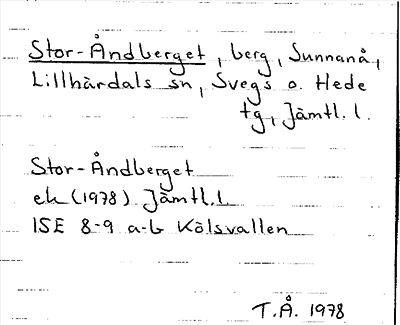 Stor-Åndberget, berg, Sunnanå,
Lillhärdals sn, Svegs o. Hede
tg, Jämtl. l.
Stor-Åndberget
ek (1978) Jämtl. l
15E 8-9 a-b Kölsvallen
T.Å. 1978